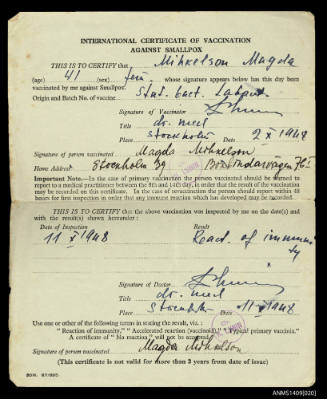 INTERNATIONAL CERTIFICATE OF VACCINATION
AGAINST SMALLPOX
THIS IS TO CERTIFY that Mihkelson Magda
(age) 41 (sex) fem. whose signature appears below has this day been
vaccinated by me against Smallpox.
Origin and Batch No. of vaccine Stat. bact. Laborat.
Signature of Vaccinator
Title dr. med
Place Stockholm Date 2 X 1948
Signature of person vaccinated Magda Mihkelson
Home Address Stockholm
Important Note.—In the case of primary vaccination the person vaccinated should be warned to
report to a medical practitioner between the 8th and 14th day, in order that the result of the vaccination
may be recorded on this certificate. In the case of revaccination the person should report within 48
hours for first inspection in order that any immune reaction which has developed may be recorded.
THIS IS TO CERTIFY that the above vaccination was inspected by me on the date(s) and
with the result(s) shown hereunder :
Date of Inspection Result
11 X 1948 React. of immunity
Signature of Doctor
Title dr. med
Place Stockh. Date 11 X 1948
Use one or other of the following terms in stating the result, viz. :
" Reaction of immunity," " Accelerated reaction (vaccinoid)," " Typical primary vaccinia."
A certificate of " No reaction " will not be accepted.
Signature of person vaccinated Magda Mihkelson
(This certificate is not valid for more than 3 years from date of issue)
ANMS1409[020]